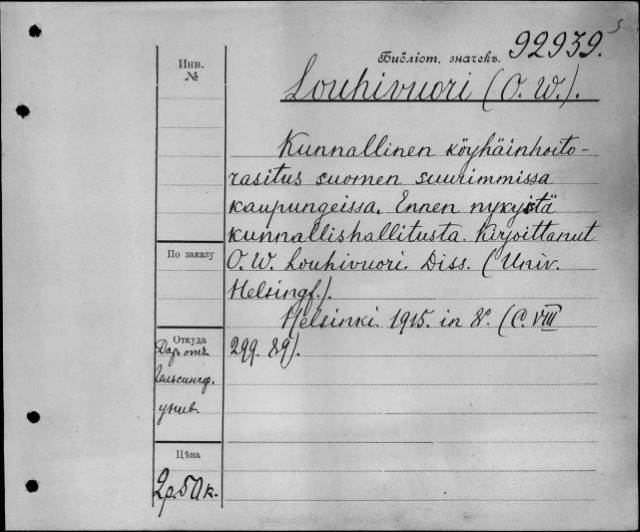 5
Инв. №
Библіот. значекъ. 92939.
Louhivuori (O. W.).
Kunnallinen köyhäinhoito-
rasitus suomen suurimmissa
kaupungeissa. Ennen nykyistä
kunnallishallitusta. Kirjoittanut
По заказу
O. W. Louhivuori. Diss. (Univ.
Helsingf.).
Helsinki. 1915. in 8°. (C. VIII
Откуда
299. 89).
Даръ отъ
Гельсингф.
унив.
Цѣна
2р. 50 к.